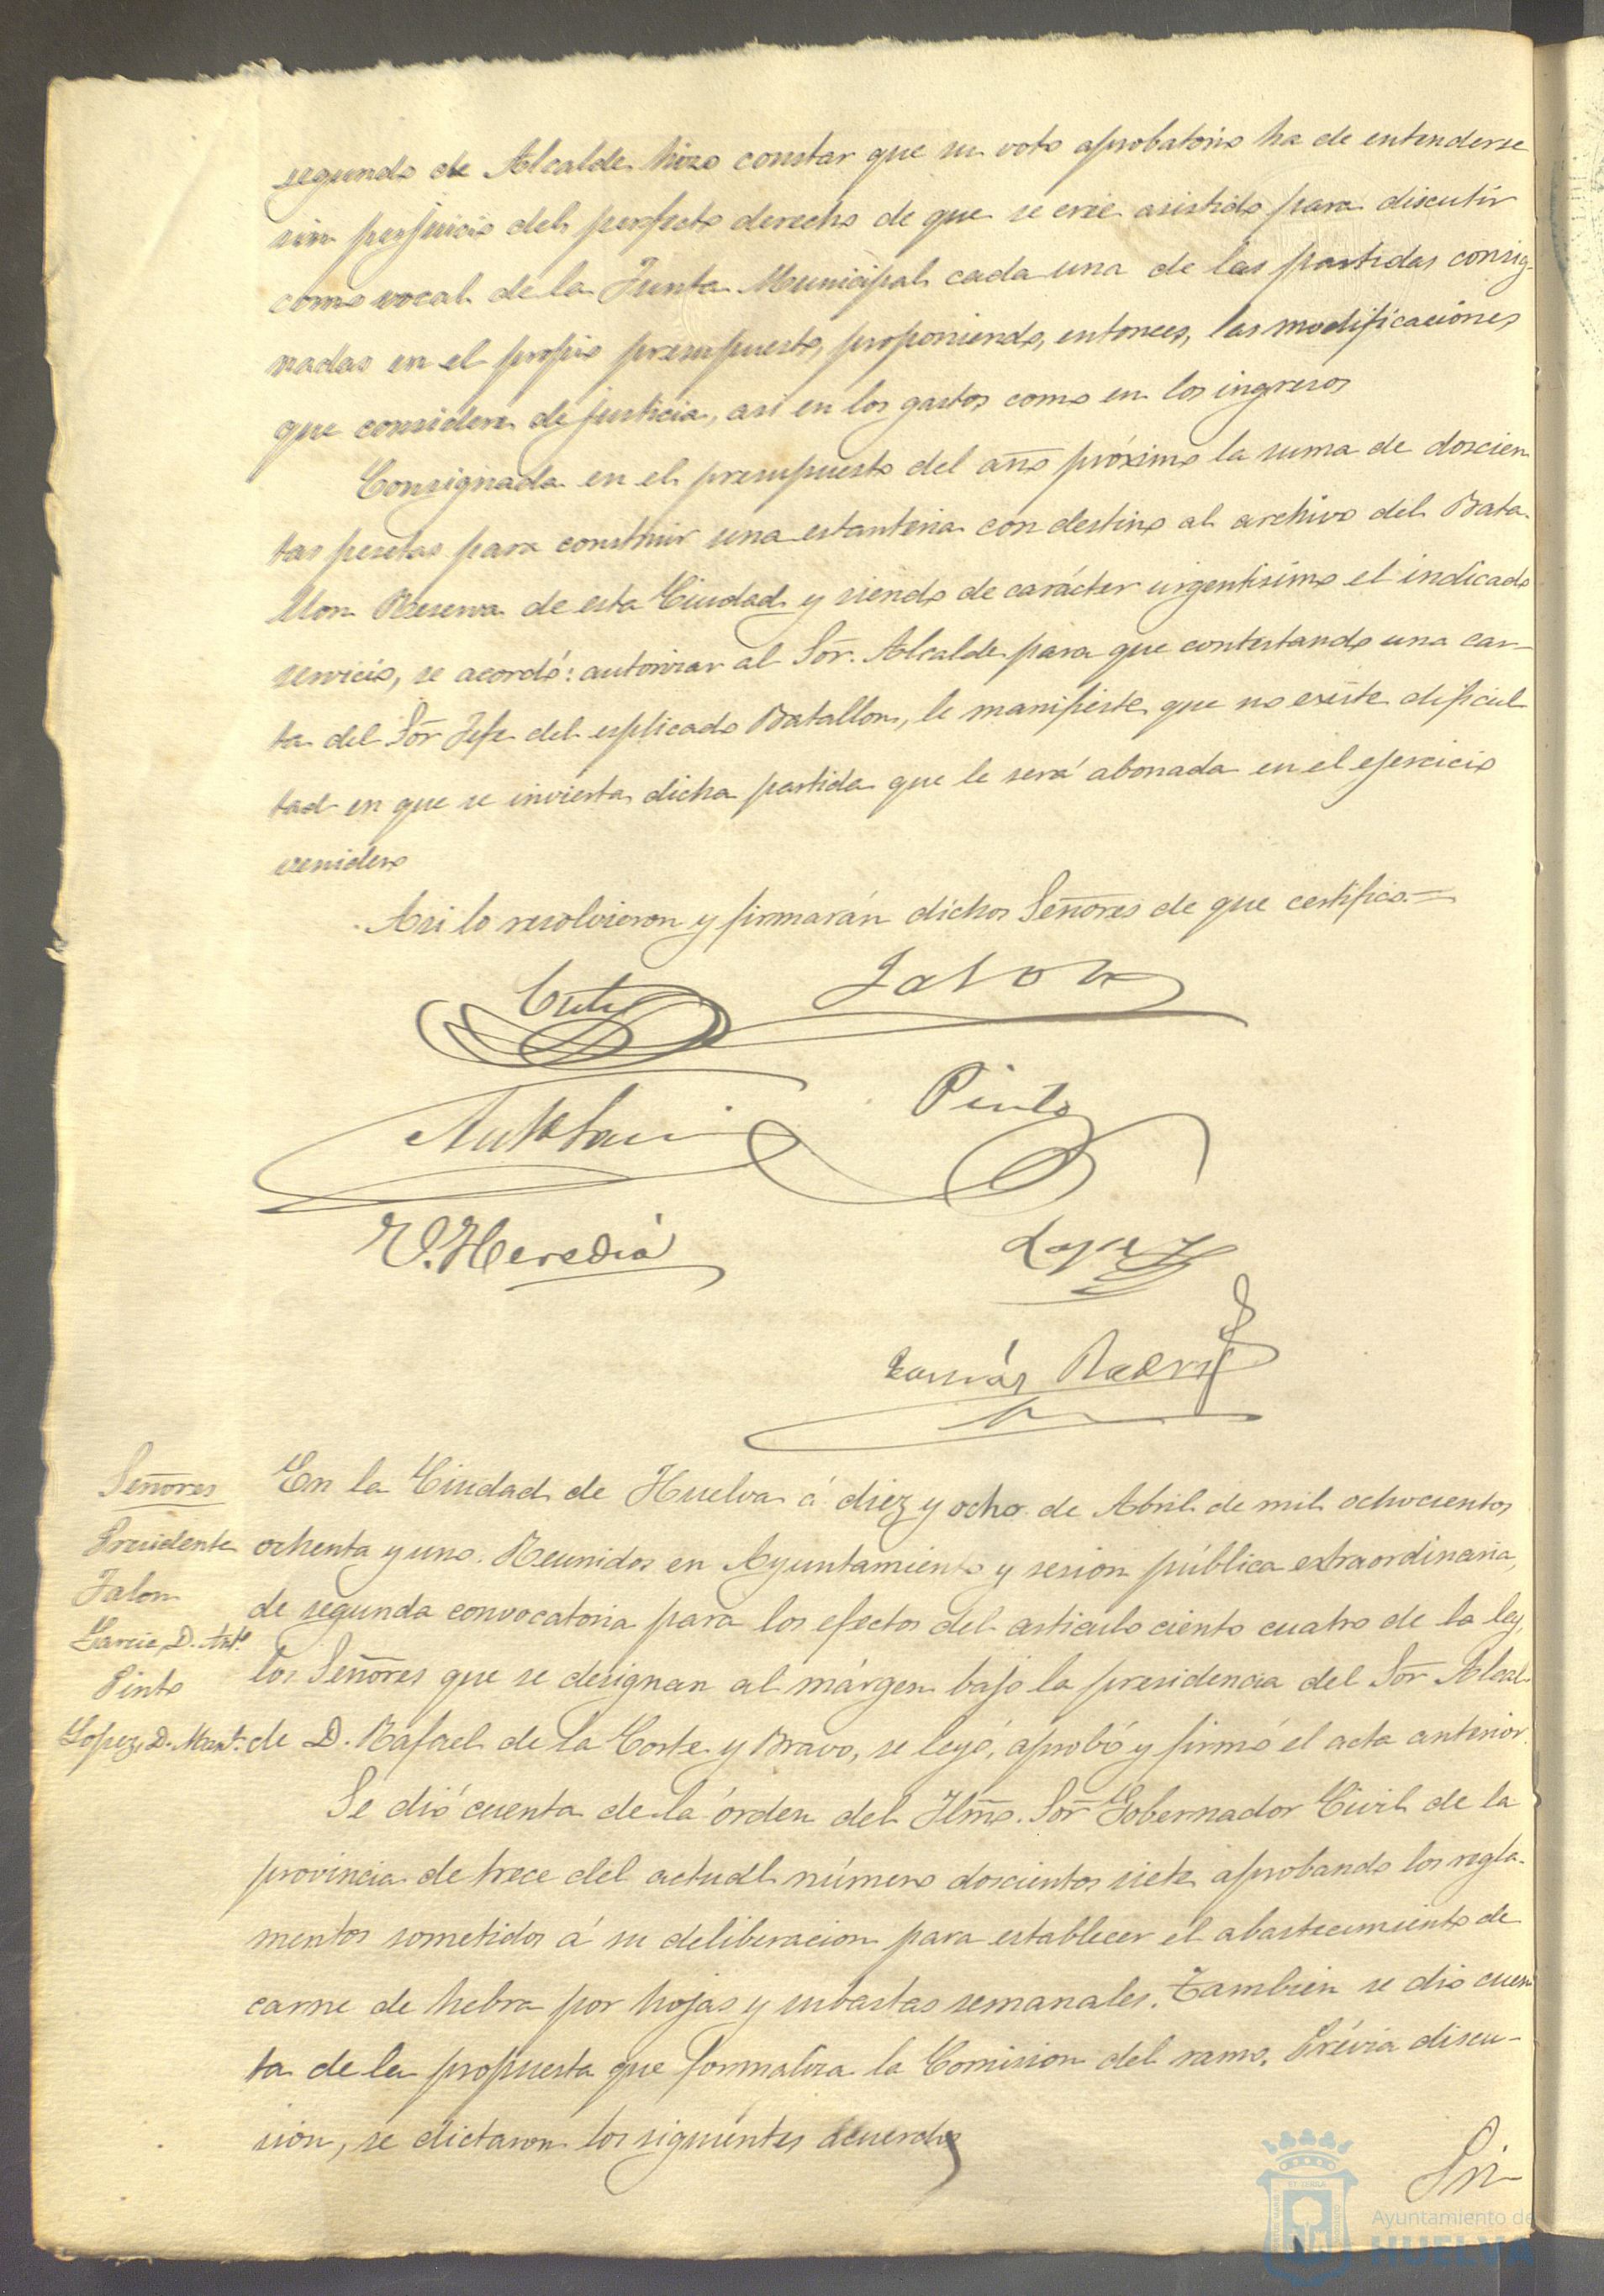 segundo de Alcalde hizo constar que su voto aprobatorio ha de entenderse
sin perjuicio del perfecto derecho de que se cree asistido para discutir
como vocal de la Junta Municipal cada una de las partidas consig-
nadas en el propio presupuesto, proponiendo, entonces, las modificaciones
que considere de justicia, asi en los gastos como en los ingresos
Consignada en el presupuesto del año próximo la suma de doscien
tas pesetas para construir una estanteria con destino al archivo del Bata-
llon Reserva de esta Ciudad y siendo de carácter urgentisimo el indicado
servicio, se acordó: autorizar al Sor. Alcalde para que contestando una car-
ta del Sor Jefe del esplicado Batallon, le manifieste que no existe dificul
tad en que se invierta dicha partida que le será abonada en el ejercicio
venidero
Asi lo resolvieron y firmarán dichos Señores de que certifico.=
Jalon
Pinto
V. Heredia
Lopez
Tomás
Señores
Presidente
Jalon
Garcia, D. Anto
Pinto
Lopez, D. Manl.
En la Ciudad de Huelva á diez y ocho de Abril de mil ochocientos
ochenta y uno. Reunidos en Ayuntamiento y sesion pública extraordinaria,
de segunda convocatoria para los efectos del articulo ciento cuatro de la ley,
los Señores que se designan al márgen bajo la presidencia del Sor Alcal-
de D. Rafael de la Corte y Bravo, se leyó, aprobó y firmó el acta anterior.
Se dió cuenta de la órden del Ilmo. Sor Gobernador Civil de la
provincia de trece del actual número doscientos siete aprobando los regla-
mentos sometidos á su deliberacion para establecer el abastecimiento de
carne de hebra por hojas y subastas semanales. Tambien se dio cuen
ta de la propuesta que formaliza la Comision del ramo. Prévia discu-
sion, se dictaron los siguientes acuerdos
Pri-
Ayuntamiento de
HUELVA